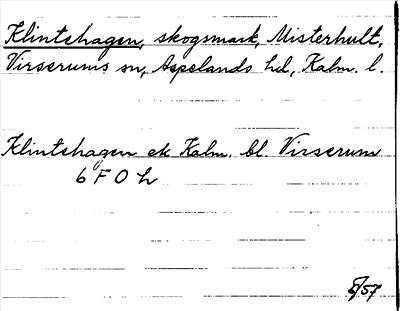 Klintehagen, skogsmark, Misterhult,
Virserums sn, Aspelands hd, Kalm. l.
Klintehagen ek Kalm. bl. Virserum
6 F O h
5/57